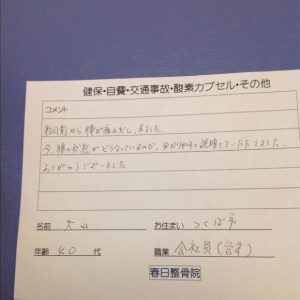 健保・自費・交通事故・酸素カプセル・その他
コメント
数日前から腰が痛みだし、来ました
今、腰の状態がどうなっているのか、分かりやすく説明していただきました
ありがとうございました
名前
お住まい つくば市
年齢 40 代
職業 会社員(営業)
春日整骨院